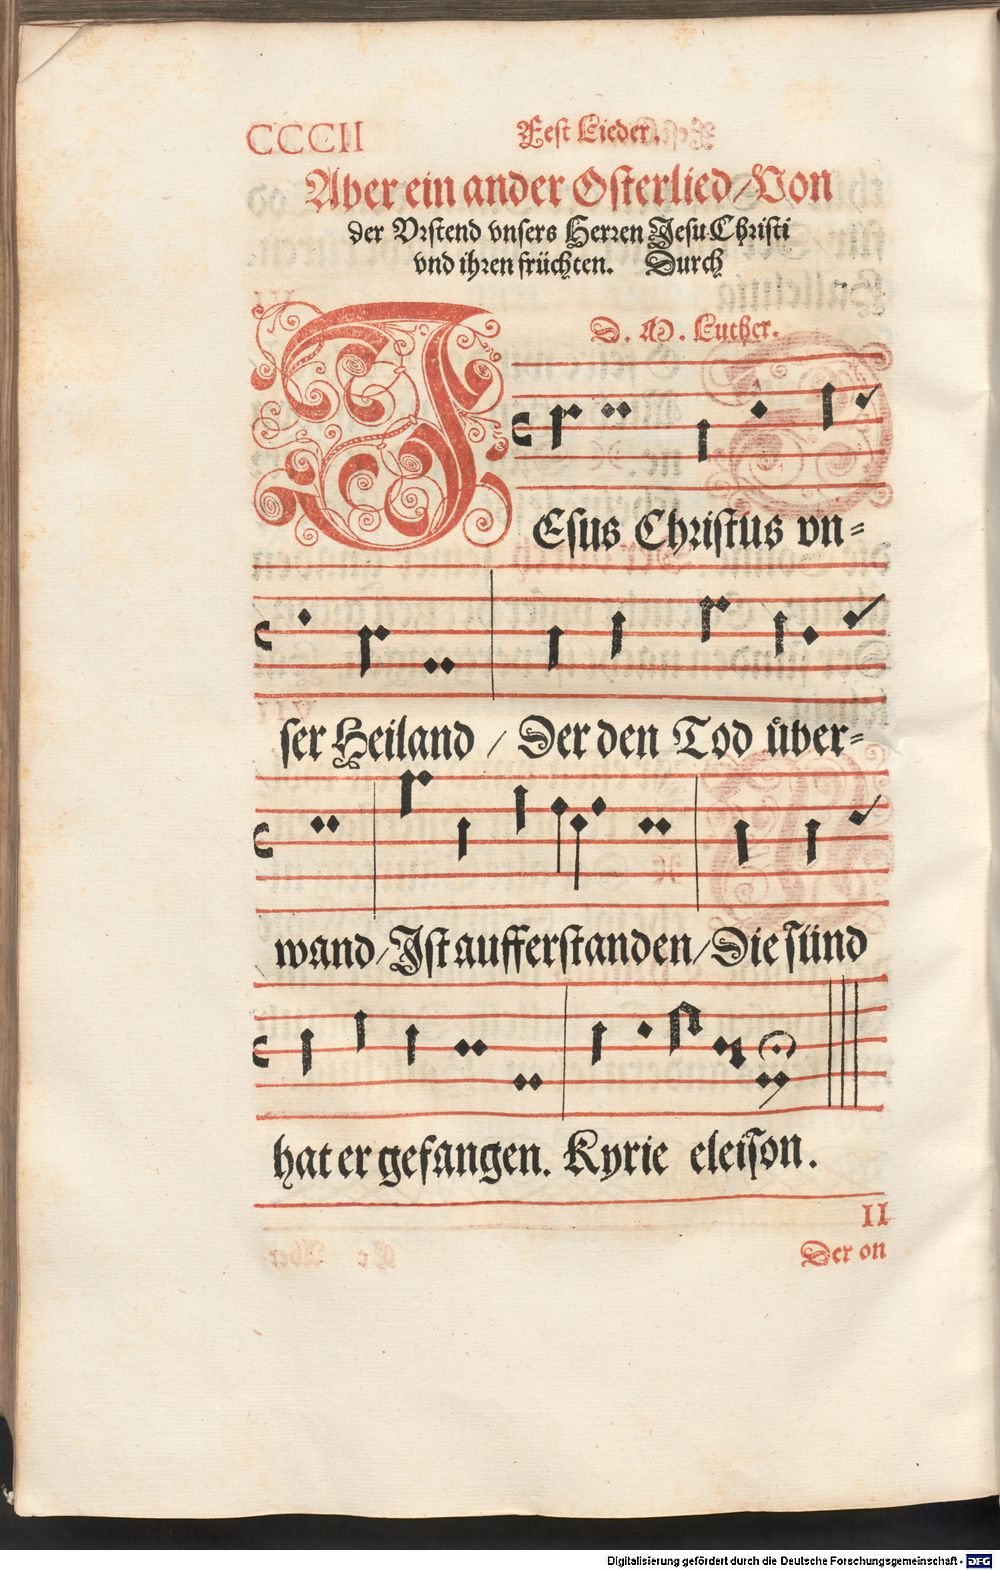 CCCII Fest Lieder.
Aber ein ander Osterlied/Von
der Vrstend vnsers Herren Jesu Christi
vnd ihren früchten. Durch
D. M. Luther.
JEsus Christus vn=
ser Heiland / Der den Tod uͤber=
wand/Ist aufferstanden/Die sünd
hat er gefangen. Kyrie eleison.
II
Der on
Digitalisierung gefördert durch die Deutsche Forschungsgemeinschaft - DFG